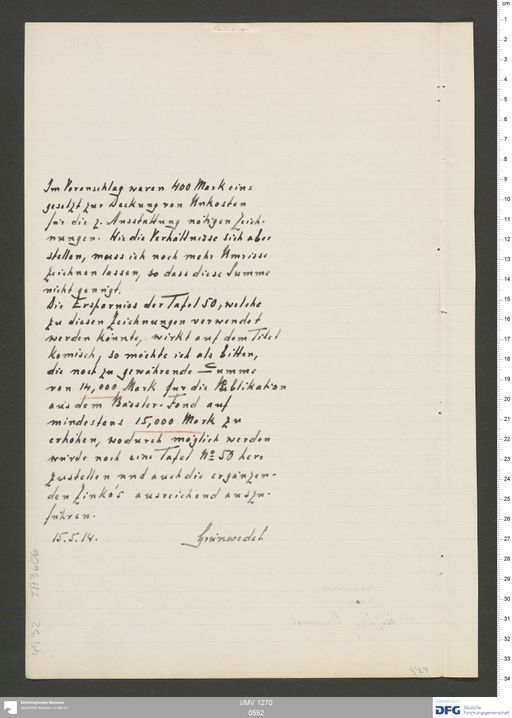 Im Voranschlag waren 400 Mark ein:
gesetzt zur Deckung von Unkosten
für die z. Ausstattung nötigen Zeich-
nungen. Wie die Verhältnisse sich aber
stellen, muss ich noch mehr Umrisse
zeichnen lassen, so dass diese Summe
nicht genügt.
Die Ersparnis der Tafel 50, welche
zu diesen Zeichnungen verwendet
werden könnte, wirkt auf dem Titel
komisch, so möchte ich also bitten,
die noch zu gewährende Summe
von 14,000 Mark für die Publikation
aus dem Bässler-Fond auf
mindestens 15,000 Mark zu
erhöhen, wodurch möglich werden
würde noch eine Tafel No 50 her:
zustellen und auch die ergänzen-
den Zinko's ausreichend auszu-
führen.
15.5.14. Grünwedel
TA3606
4932
527
Ethnologisches Museum
Staatliche Museen zu Berlin
I/MV 1270
0552
DFG Deutsche
Forschungsgemeinschaft
cm
1
2
3
4
5
6
7
8
9
10
11
12
13
14
15
16
17
18
19
20
21
22
23
24
25
26
27
28
29
30
31
32
33
34